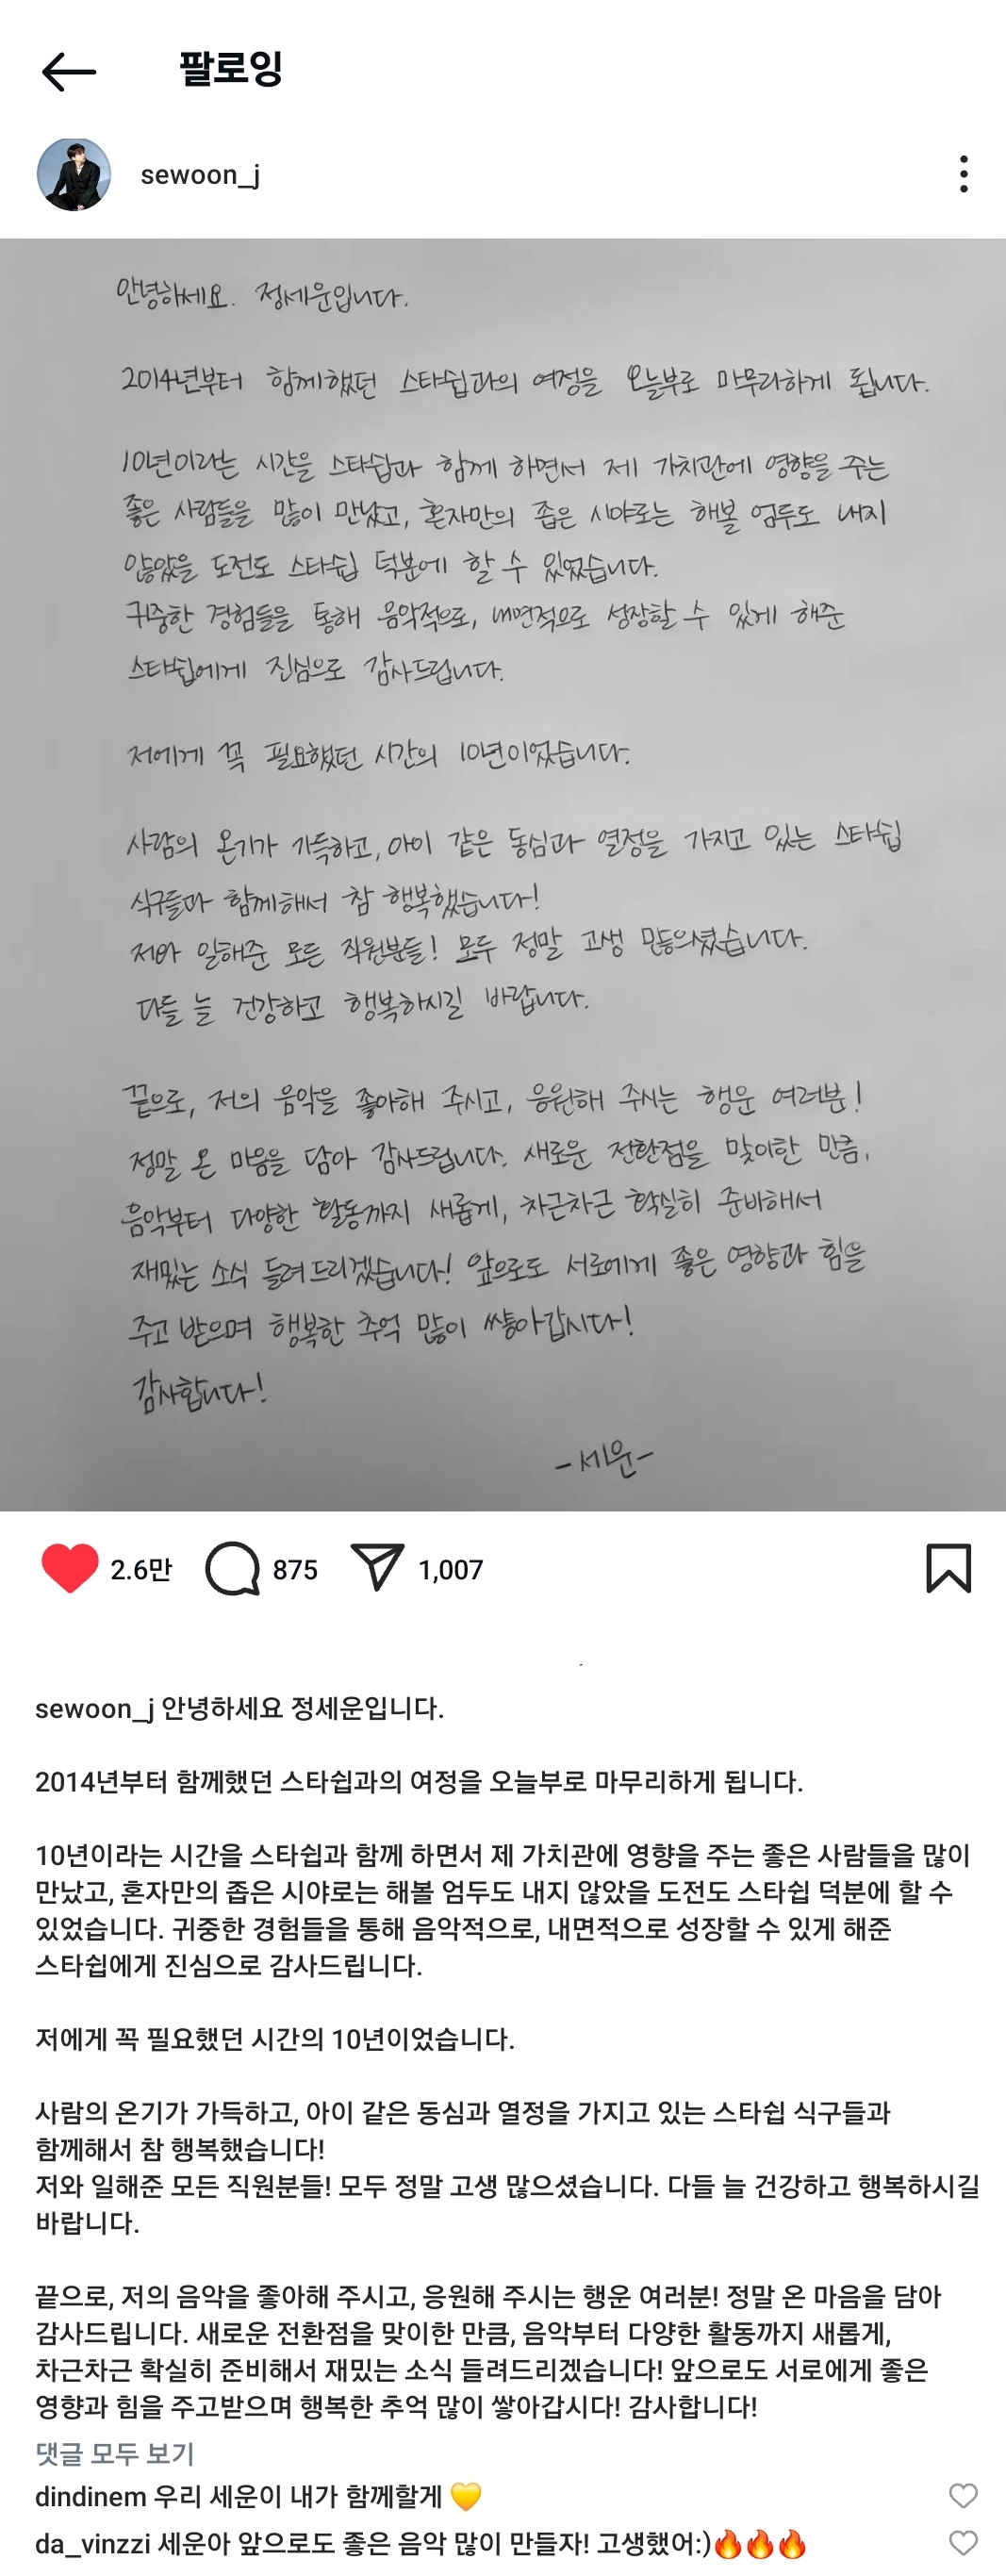 팔로잉
sewoon_j
안녕하세요. 정세운입니다.
2014년부터 함께했던 스타쉽과의 여정을 오늘부로 마무리하게 됩니다.
10년이라는 시간을 스타쉽과 함께 하면서 제 가치관에 영향을 주는
좋은 사람들을 많이 만났고, 혼자만의 좁은 시야로는 해볼 엄두도 내지
않았을 도전도 스타쉽 덕분에 할 수 있었습니다.
귀중한 경험들을 통해 음악적으로, 내면적으로 성장할 수 있게 해준
스타쉽에게 진심으로 감사드립니다.
저에게 꼭 필요했던 시간의 10년이었습니다.
사람의 온기가 가득하고, 아이 같은 동심과 열정을 가지고 있는 스타쉽
식구들과 함께해서 참 행복했습니다!
저와 일해준 모든 직원분들! 모두 정말 고생 많으셨습니다.
다들 늘 건강하고 행복하시길 바랍니다.
끝으로, 저의 음악을 좋아해 주시고, 응원해 주시는 행운 여러분!
정말 온 마음을 담아 감사드립니다. 새로운 전환점을 맞이한 만큼,
음악부터 다양한 활동까지 새롭게, 차근차근 확실히 준비해서
재밌는 소식 들려드리겠습니다! 앞으로도 서로에게 좋은 영향과 힘을
주고 받으며 행복한 추억 많이 쌓아갑시다!
감사합니다!
-세운-
2.6만 875 1,007
sewoon_j 안녕하세요 정세운입니다.
2014년부터 함께했던 스타쉽과의 여정을 오늘부로 마무리하게 됩니다.
10년이라는 시간을 스타쉽과 함께 하면서 제 가치관에 영향을 주는 좋은 사람들을 많이
만났고, 혼자만의 좁은 시야로는 해볼 엄두도 내지 않았을 도전도 스타쉽 덕분에 할 수
있었습니다. 귀중한 경험들을 통해 음악적으로, 내면적으로 성장할 수 있게 해준
스타쉽에게 진심으로 감사드립니다.
저에게 꼭 필요했던 시간의 10년이었습니다.
사람의 온기가 가득하고, 아이 같은 동심과 열정을 가지고 있는 스타쉽 식구들과
함께해서 참 행복했습니다!
저와 일해준 모든 직원분들! 모두 정말 고생 많으셨습니다. 다들 늘 건강하고 행복하시길
바랍니다.
끝으로, 저의 음악을 좋아해 주시고, 응원해 주시는 행운 여러분! 정말 온 마음을 담아
감사드립니다. 새로운 전환점을 맞이한 만큼, 음악부터 다양한 활동까지 새롭게,
차근차근 확실히 준비해서 재밌는 소식 들려드리겠습니다! 앞으로도 서로에게 좋은
영향과 힘을 주고받으며 행복한 추억 많이 쌓아갑시다! 감사합니다!
댓글 모두 보기
dindinem 우리 세운이 내가 함께할게 💛
da_vinzzi 세운아 앞으로도 좋은 음악 많이 만들자! 고생했어:)🔥🔥🔥